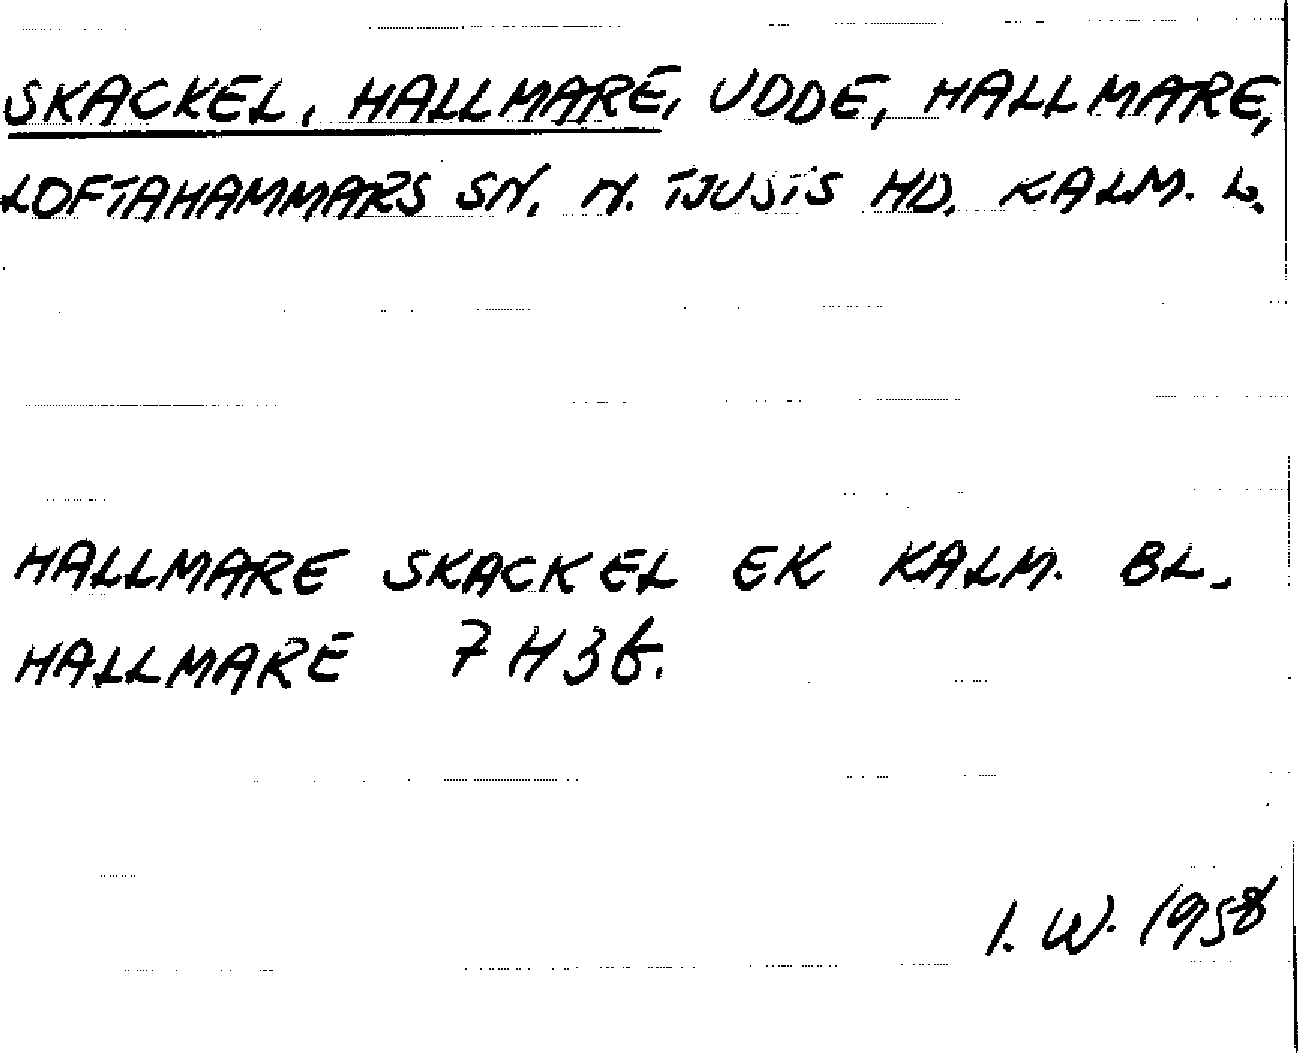 SKACKEL, HALLMARE, UDDE, HALLMARE,
LOFTAHAMMARS SN. N. TJUSTS HD. KALM. L.
HALLMARE SKACKEL EK KALM. BL.
HALLMARE 7H3f.
I. W. 1958